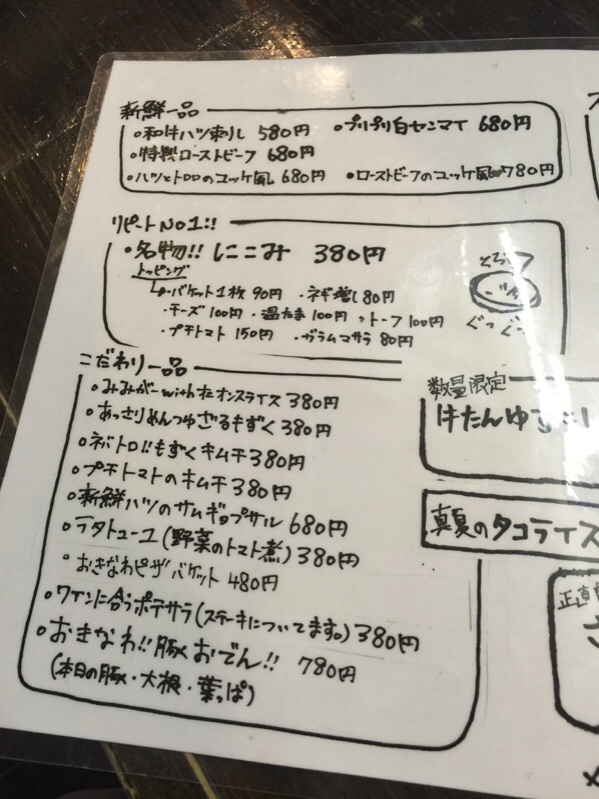 新鮮一品
○和牛ハツ刺し 580円 ○プリプリ白センマイ 680円
○特製ローストビーフ 680円
○ハツとトロロのユッケ風 680円 ○ローストビーフのユッケ風 780円
リピートNo1!!
・名物!! にこみ 380円
トッピング
・バケット1枚 90円 ・ネギ増し 80円
・チーズ 100円 ・温たま 100円 ・トーフ 100円
・プチトマト 150円 ・ガラムマサラ 80円
ぐつぐつ
こだわり一品
○みみがーwithオニオンスライス 380円
○あっさりめんつゆざるもずく 380円
○ネバトロ!!もずくキムチ 380円
○プチトマトのキムチ 380円
○新鮮ハツのサムギョプサル 680円
○ラタトゥーユ(野菜のトマト煮) 380円
○おきなわピザバケット 480円
○ワインに合うポテサラ(ステーキについてます。) 380円
○おきなわ!!豚おでん!! 780円
(本日の豚・大根・葉っぱ)
数量限定
牛たんゆ
真夏のタコライス
正直